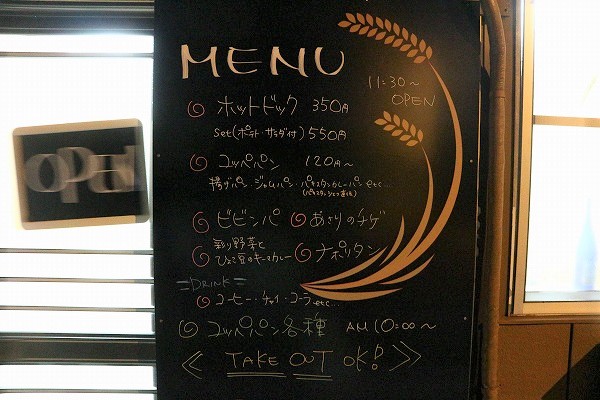 OPEN
MENU
11:30～
OPEN
ホットドック 350円
set(ポテト・サラダ付) 550円
コッペパン 120円～
揚げパン・ジャムパン・パキスタンカレーパン etc...
ビビンバ あさりのチゲ
彩り野菜と
ひよこ豆のキーマカレー ナポリタン
=DRINK=
コーヒー・チャイ・コーラ etc...
コッペパン各種 AM10:00～
《 TAKE OUT OK!! 》